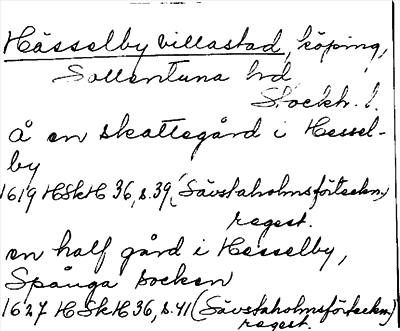 Hässelby villastad, köping,
Sollentuna hd
Stockh. l.
Å en skattegård i Hessel-
by
1619 HSkH 36, s. 39, (Sävstaholmsförteckn.)
regest.
en half gård i Hesselby,
Spånga socken
1627 HSkH 36, s. 41 (Sävstaholmsförteckn.)
regest.